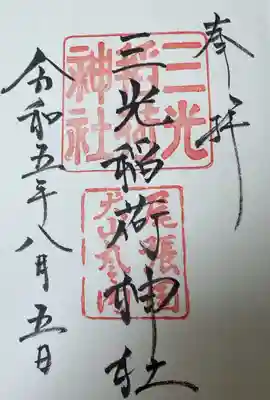 奉拝
三光稲荷神社
三光稲荷神社
尾張国犬山
令和五年八月五日